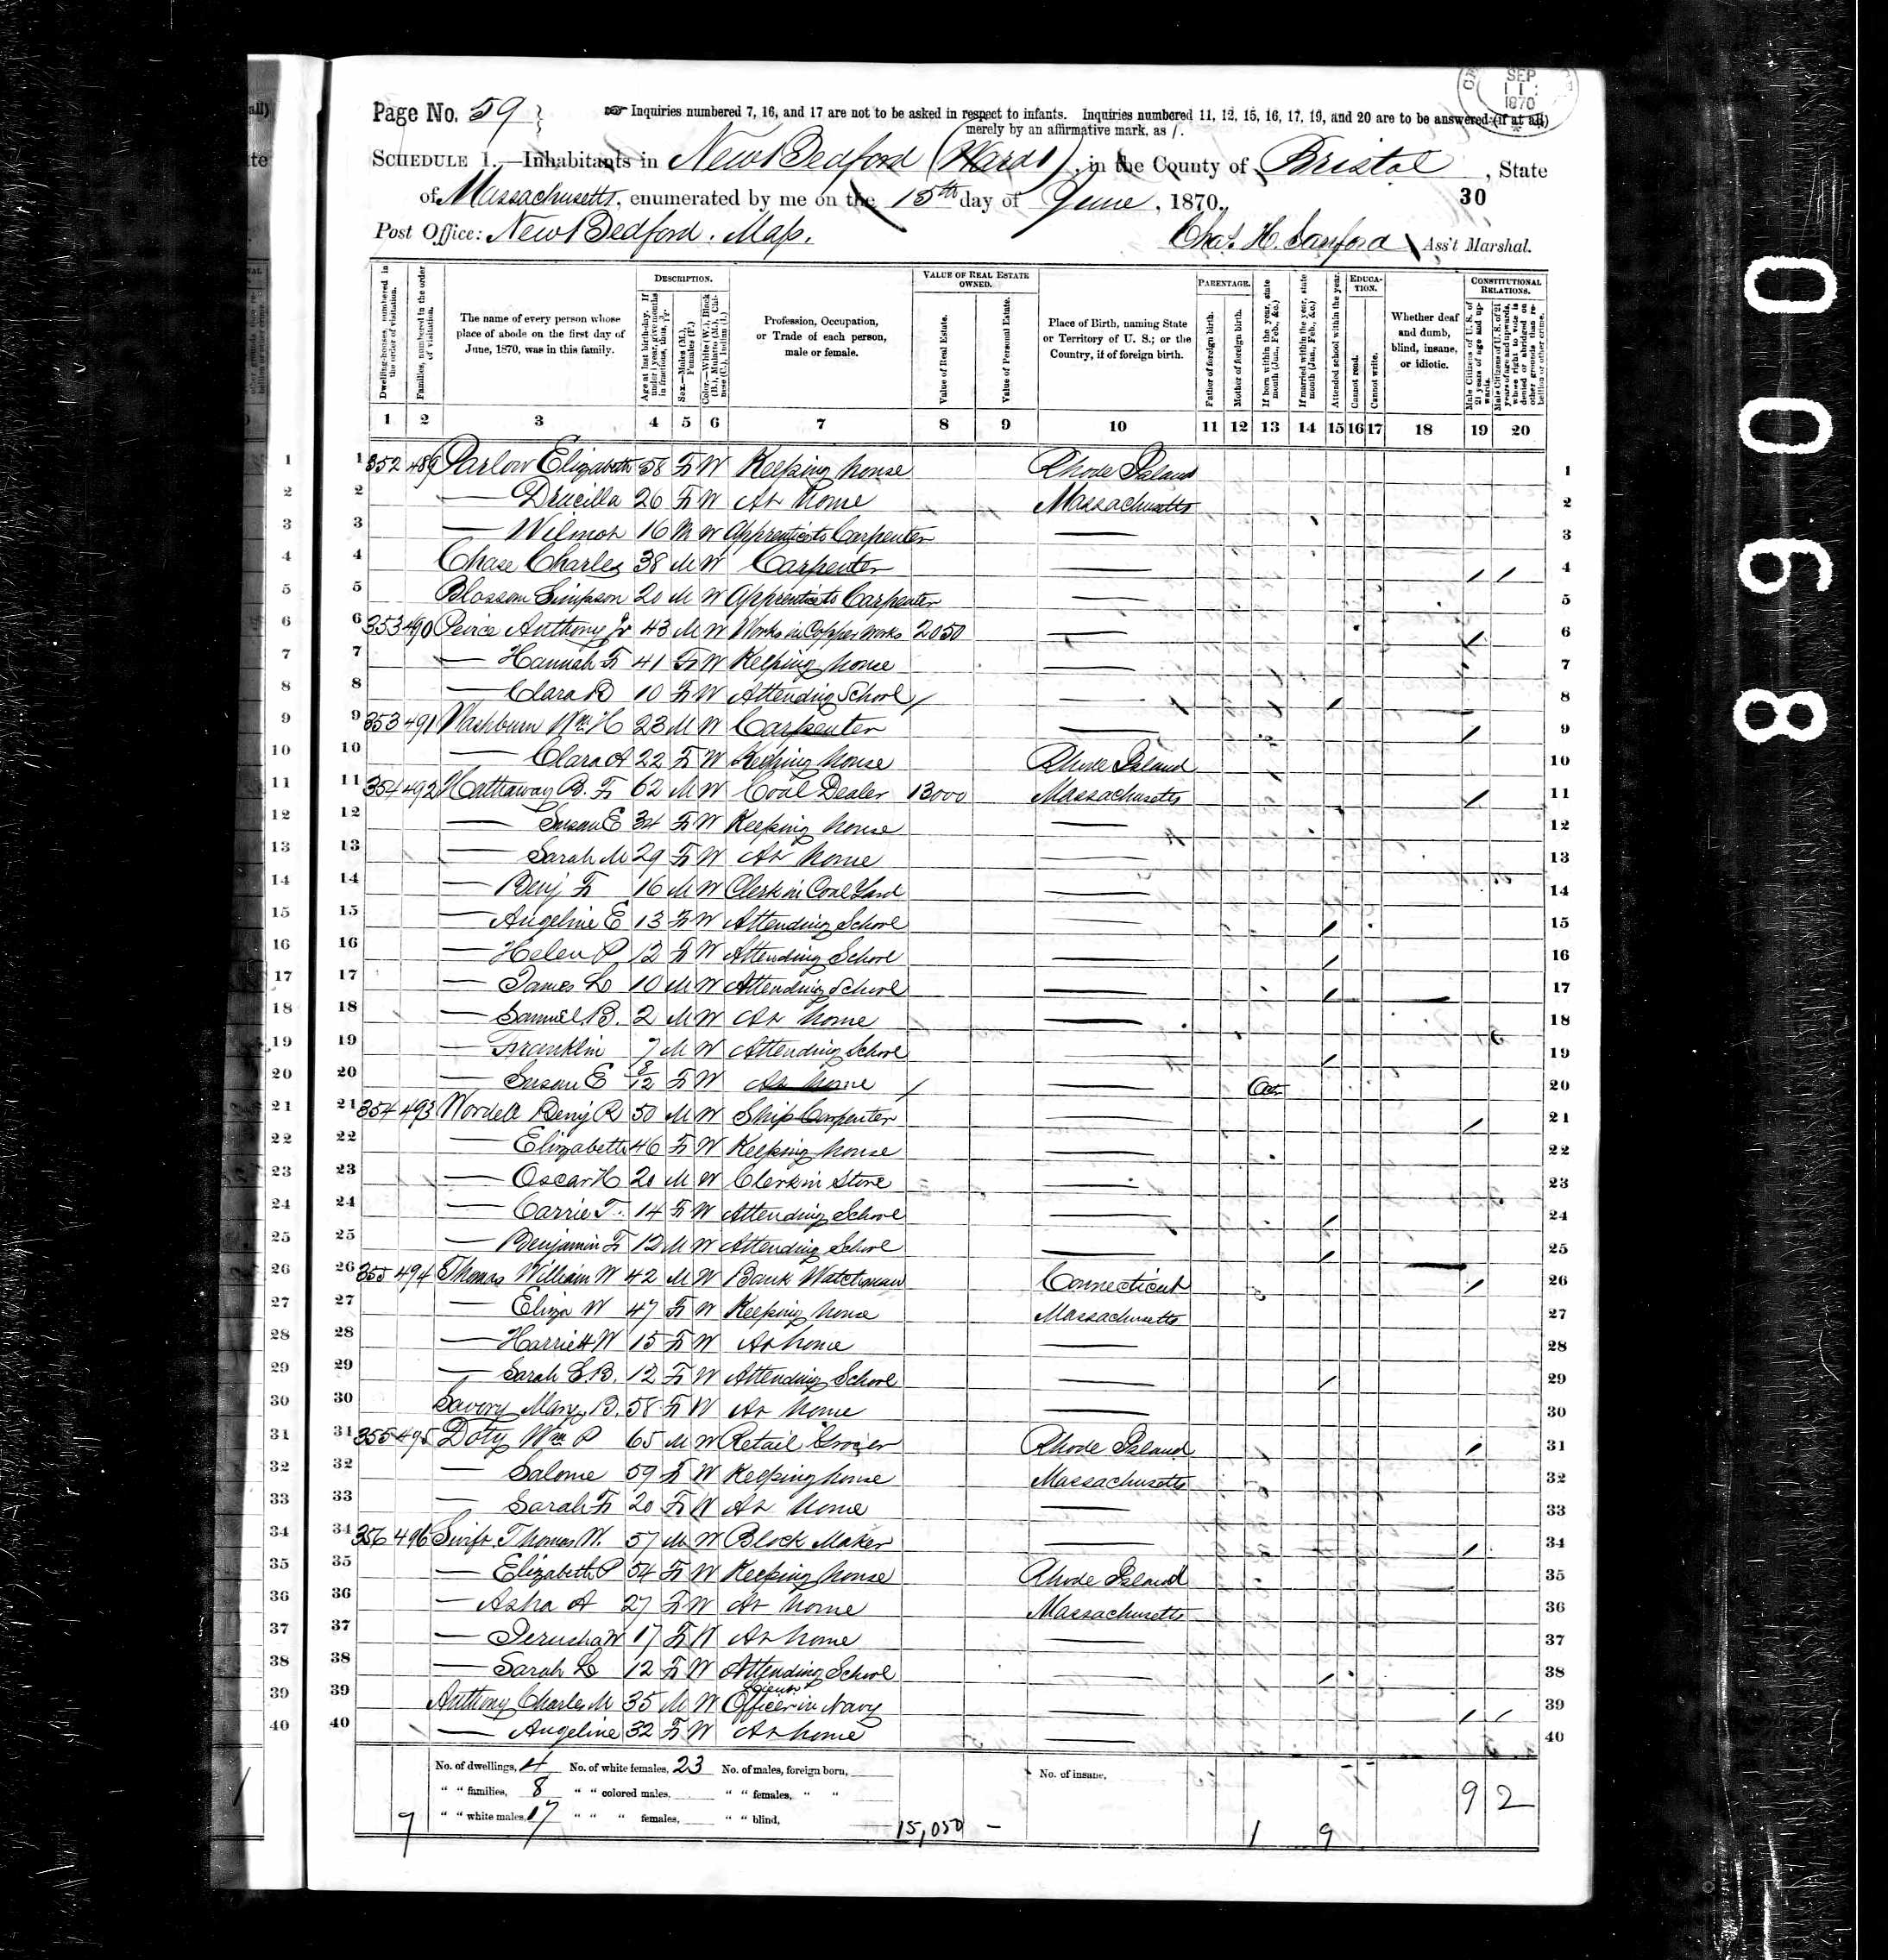 Page No. 59
☞ Inquiries numbered 7, 16, and 17 are not to be asked in respect to infants. Inquiries numbered 11, 12, 15, 16, 17, 19, and 20 are to be answered (if at all)
merely by an affirmative mark, as /.
SEP
11
1870
SCHEDULE 1.—Inhabitants in New Bedford (Ward 1), in the County of Bristol, State
of Massachusetts, enumerated by me on the 15th day of June, 1870.
30
Post Office: New Bedford. Mass.
Chas. H. Sanford, Ass't Marshal.
Dwelling-houses, numbered in the order of visitation.
Families, numbered in the order of visitation.
The name of every person whose place of abode on the first day of June, 1870, was in this family.
DESCRIPTION.
Age at last birth-day. If under 1 year, give months in fractions, thus, 3/12.
Sex.—Males (M.), Females (F.)
Color.—White (W.), Black (B.), Mulatto (M.), Chinese (C.), Indian (I.)
Profession, Occupation, or Trade of each person, male or female.
VALUE OF REAL ESTATE OWNED.
Value of Real Estate.
Value of Personal Estate.
Place of Birth, naming State or Territory of U. S.; or the Country, if of foreign birth.
PARENTAGE.
Father of foreign birth.
Mother of foreign birth.
If born within the year, state month (Jan., Feb., &c.)
If married within the year, state month (Jan., Feb., &c.)
EDUCATION.
Attended school within the year.
Cannot read.
Cannot write.
Whether deaf and dumb, blind, insane, or idiotic.
CONSTITUTIONAL RELATIONS.
Male Citizens of U. S. of 21 years of age and upwards.
Male Citizens of U. S. of 21 years of age and upwards, whose right to vote is denied or abridged on other grounds than rebellion or other crime.
1 2 3 4 5 6 7 8 9 10 11 12 13 14 15 16 17 18 19 20
1 352 489 Parlow Elizabeth 58 F W Keeping house Rhode Island 1
2 — Drucilla 26 F W At home Massachusetts 2
3 — Wilmot 16 M W Apprentice to Carpenter — 3
4 Chase Charles 38 M W Carpenter — / / 4
5 Blossom Simpson 20 M W Apprentice to Carpenter — 5
6 353 490 Peirce Anthony Jr 43 M W Works in Copper Works 2050 — / 6
7 — Hannah F 41 F W Keeping house — 7
8 — Clara B 10 F W Attending School / — / 8
9 353 491 Washburn Wm H 23 M W Carpenter — / 9
10 — Clara A 22 F W Keeping house Rhode Island 10
11 354 492 Hathaway B. F 62 M W Coal Dealer 13000 Massachusetts / 11
12 — Susan E 34 F W Keeping house — 12
13 — Sarah M 29 F W At home — 13
14 — Benj F 16 M W Clerk in Coal Yard — 14
15 — Angeline E 13 F W Attending School — / 15
16 — Helen P 12 F W Attending School — / 16
17 — James L 10 M W Attending School — / 17
18 — Samuel B. 2 M W At home — 18
19 — Franklin 7 M W Attending School — / 19
20 — Susan E 8/12 F W At home / — Oct 20
21 354 493 Wordell Benj R 50 M W Ship Carpenter — / 21
22 — Elizabeth 46 F W Keeping house — 22
23 — Oscar H 20 M W Clerk in Store — 23
24 — Carrie T. 14 F W Attending School — / 24
25 — Benjamin F 12 M W Attending School — / 25
26 355 494 Thomas William W 42 M W Bank Watchman Connecticut / 26
27 — Eliza W 47 F W Keeping house Massachusetts 27
28 — Harriett W 15 F W At home — 28
29 — Sarah E. B. 12 F W Attending School — / 29
30 Savory Mary B. 58 F W At home — 30
31 355 495 Doty Wm P 65 M W Retail Grocer Rhode Island / 31
32 — Salome 59 F W Keeping house Massachusetts 32
33 — Sarah F 20 F W At home — 33
34 356 496 Swift Thomas W. 57 M W Block Maker — / 34
35 — Elizabeth P 54 F W Keeping house Rhode Island 35
36 — A 27 F W At home Massachusetts 36
37 — Jerusha W 17 F W At home — 37
38 — Sarah L 12 F W Attending School — / 38
39 Anthony Charles M 35 M W Officer in Navy / / 39
40 — Angeline 32 F W At home — 40
No. of dwellings, 4 No. of white females, 23 No. of males, foreign born, No. of insane,
" " families, 8 " " colored males, " " females, " " 9 2
" " white males, 17 " " " females, " " blind,
7 15,050 — 1 9
009008